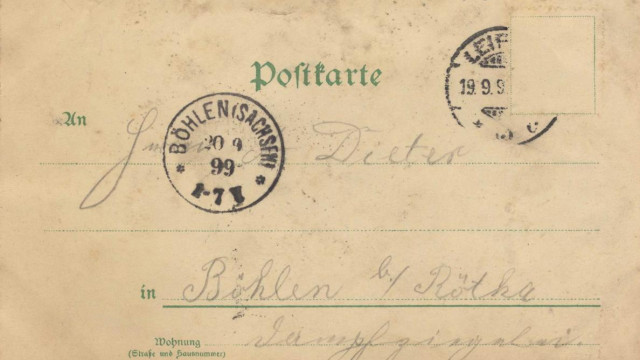 Postkarte
LEIP
19.9.9
BÖHLEN (SACHSEN)
20 9
99
-7 V
An
Dieter
in Böhlen b/ Rötha
Wohnung
(Straße und Hausnummer)
Dampfziegelei.